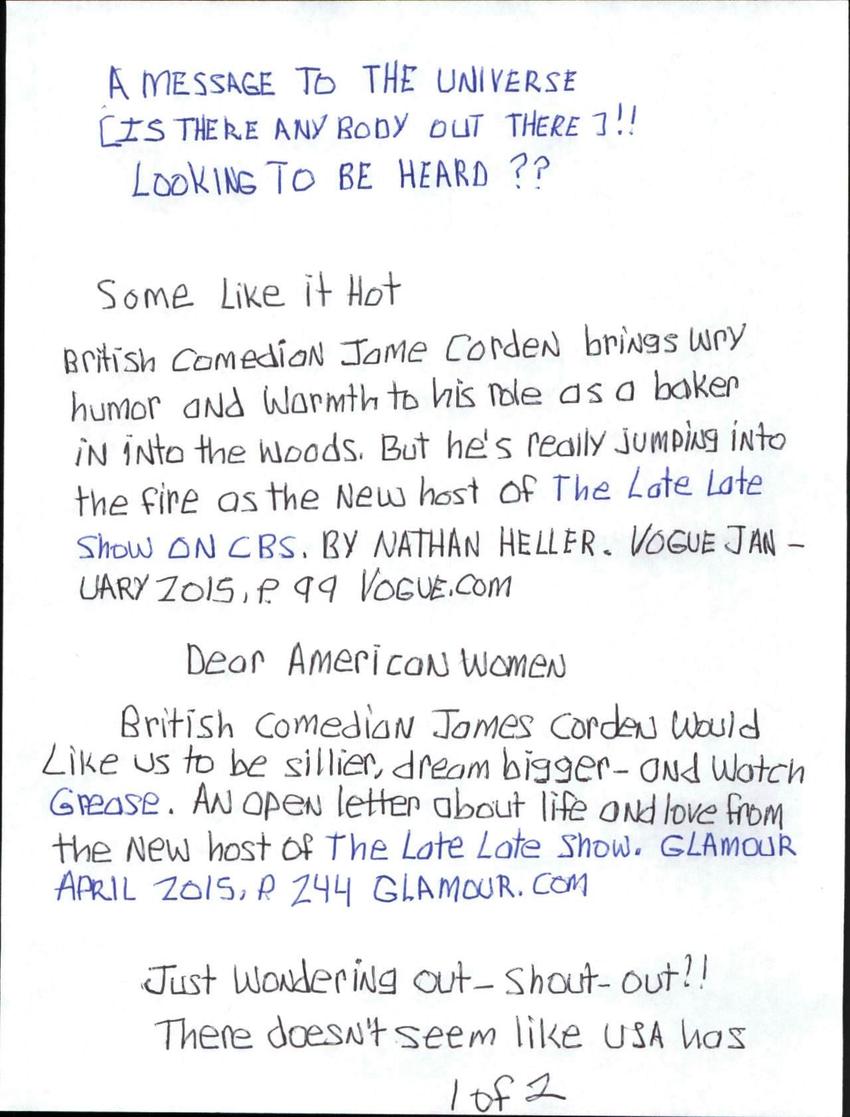 A MESSAGE TO THE UNIVERSE
[IS THERE ANY BODY OUT THERE]!!
LOOKING TO BE HEARD ??
Some Like it Hot
British Comedian Jame Corden brings wry
humor and warmth to his role as a baker
in into the woods. But he's really jumping into
the fire as the New host of The Late Late
Show ON CBS. BY NATHAN HELLER. VOGUE JAN-
UARY 2015, P. 99 VOGUE.COM
Dear American Women
British Comedian James Corden Would
Like us to be sillier, dream bigger- and watch
Grease. An open letter about life and love from
the New host of The Late Late Show. GLAMOUR
APRIL 2015, P. 244 GLAMOUR.COM
Just wondering out- shout- out!!
There doesn't seem like USA has
1 of 2